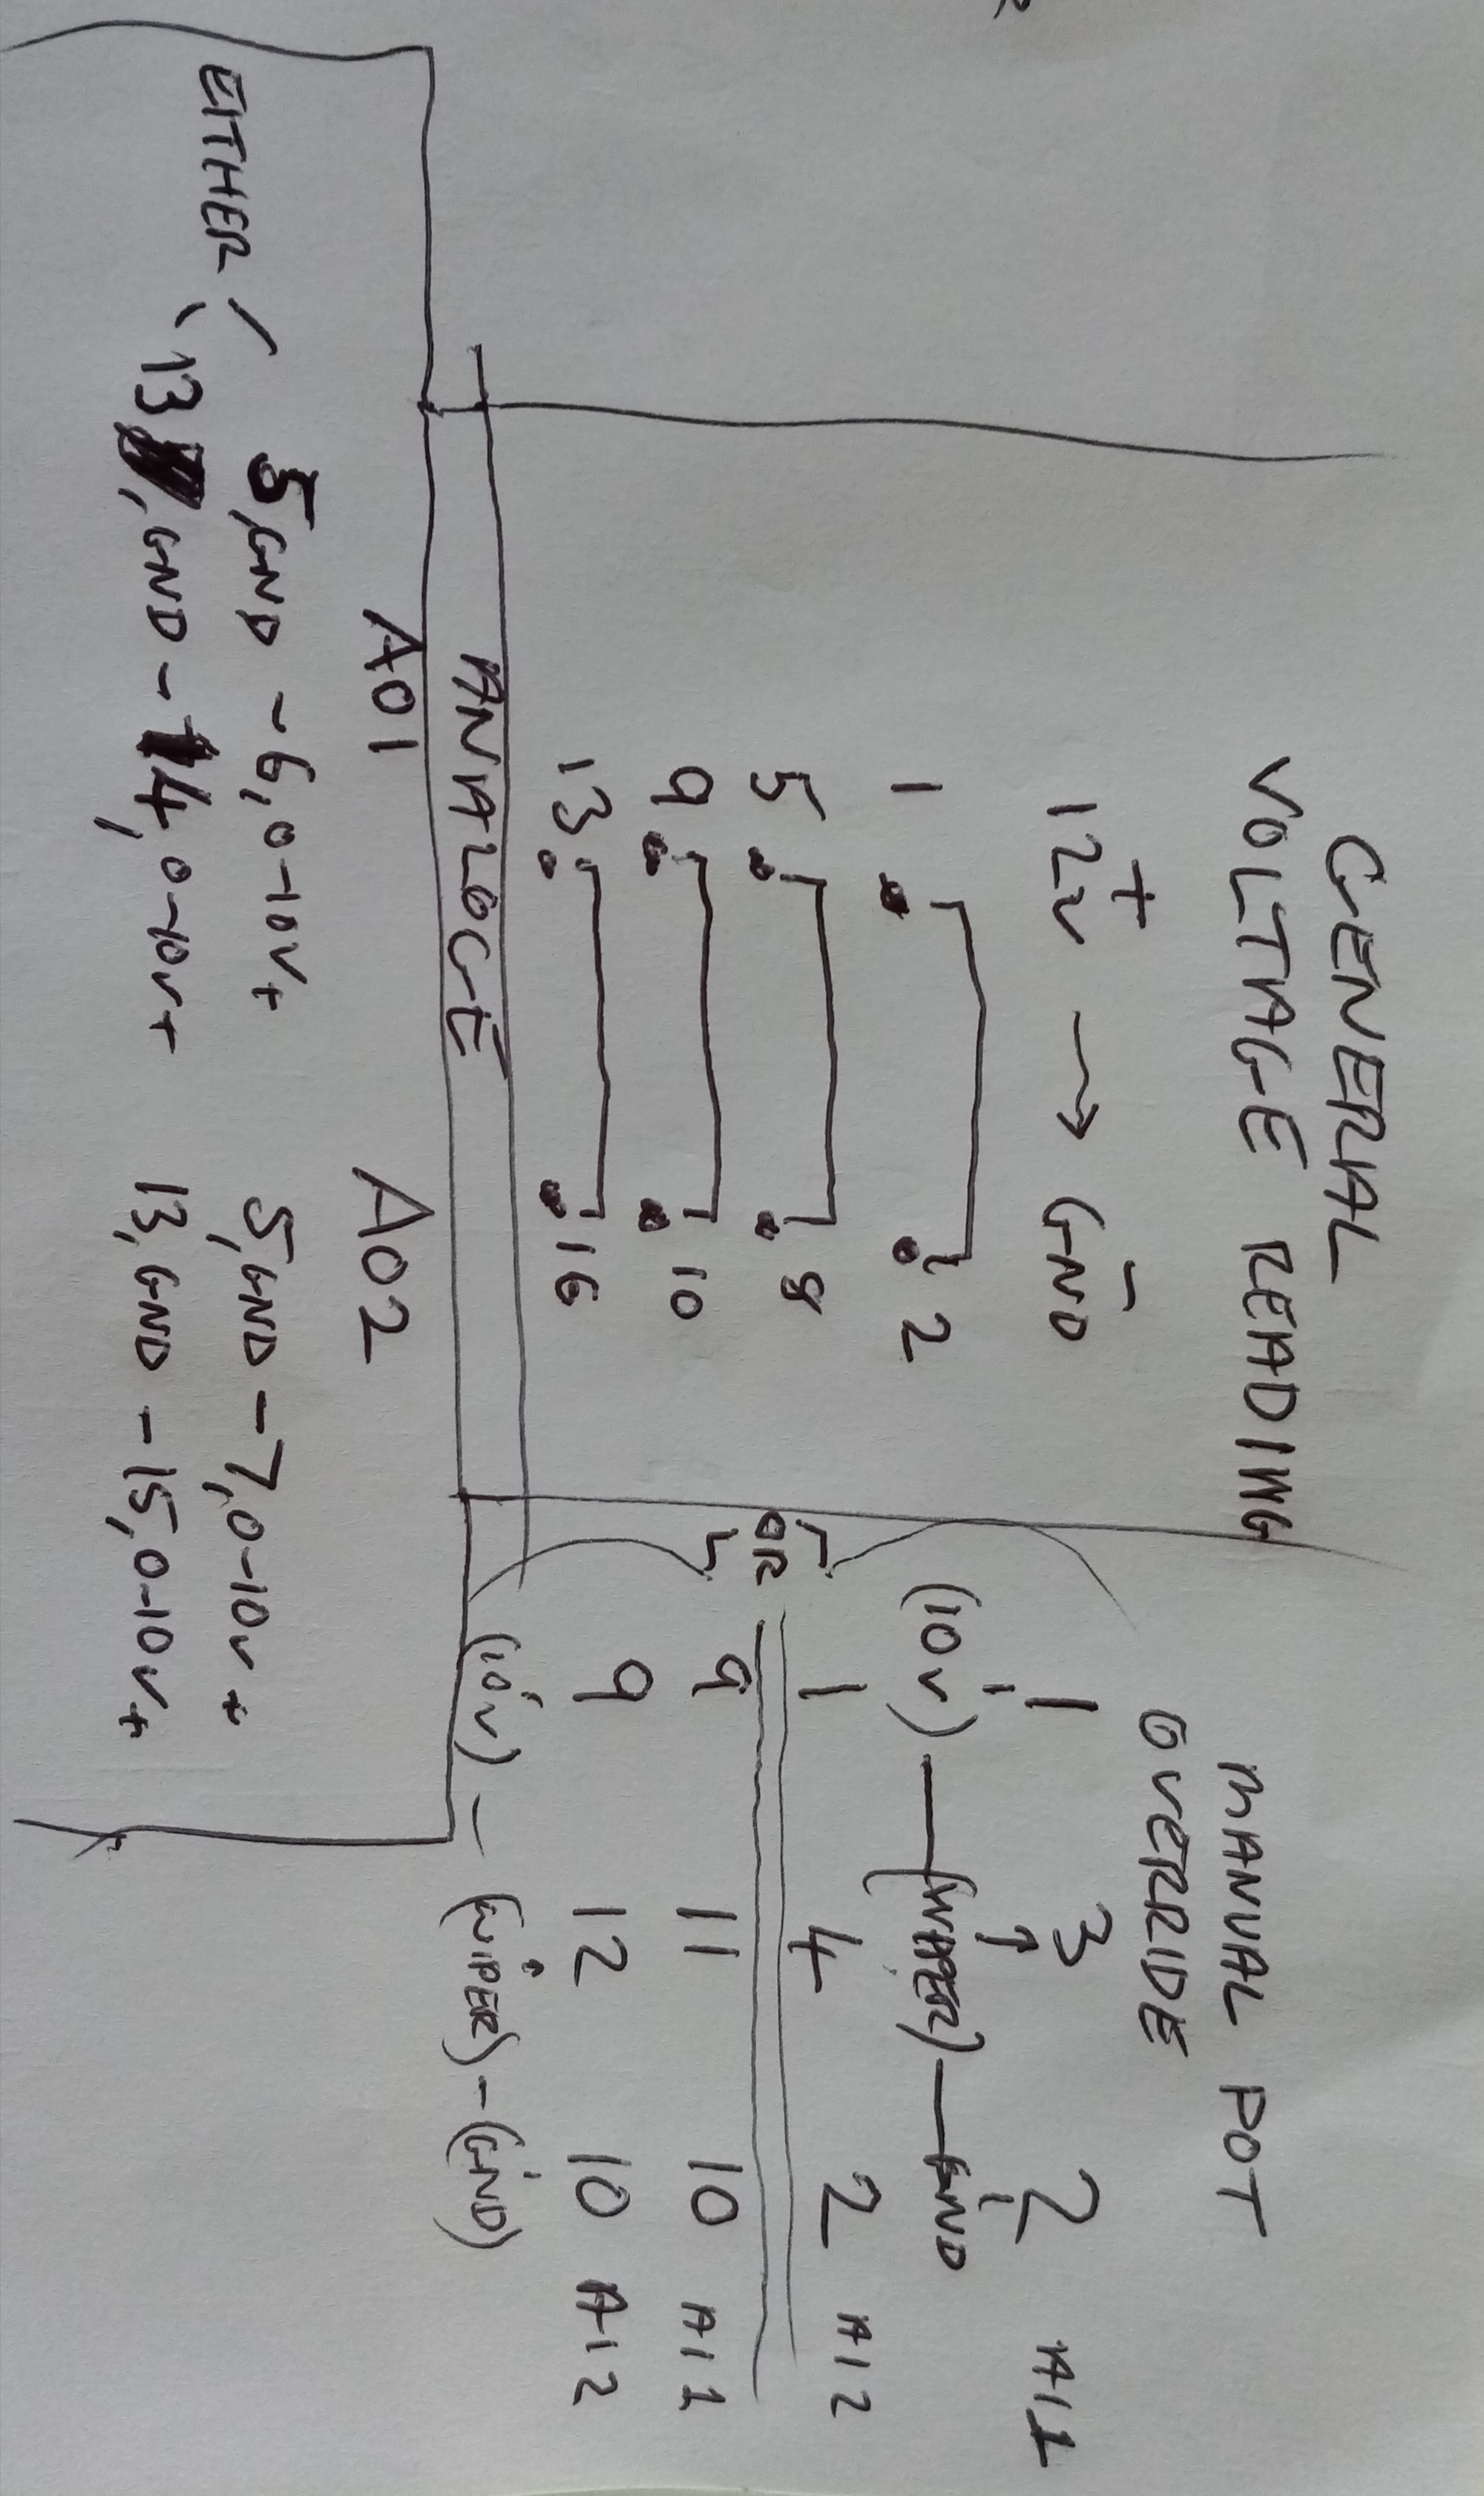 GENERAL
VOLTAGE READING
+ -
12v → GND
1 2
5 8
9 10
13 16
ANALOGE
A01 A02
EITHER
5,GND - 6,0-10v+ 5,GND - 7,0-10v+
13,GND - 14,0-10v+ 13,GND - 15,0-10v+
MANUAL POT
OVERRIDE
1 3 2 A11
(10v) — (WIPER) — GND
1 4 2 A12
OR
9 11 10 A11
9 12 10 A12
(10v) - (WIPER) - (GND)